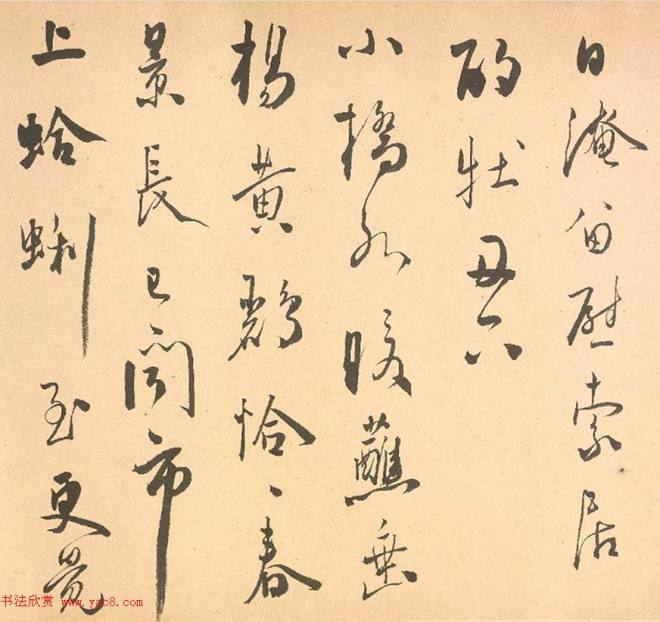 日淹留慰索居
酌牡丹下
小橋水暖蘸垂
楊黄鸝恰〻春
景長已聞市
上蛤蜊至更覺
书法欣赏 www.yac8.com